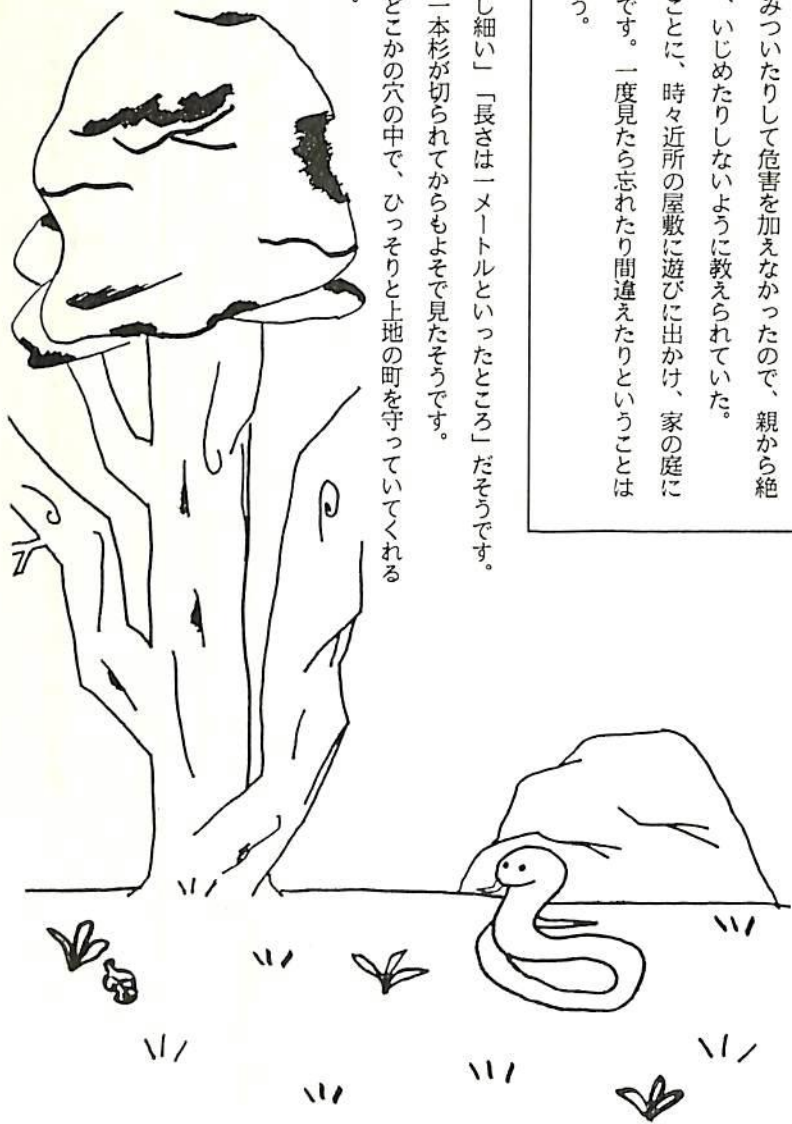 みついたりして危害を加えなかったので、親から絶
、いじめたりしないように教えられていた。
ことに、時々近所の屋敷に遊びに出かけ、家の庭に
です。一度見たら忘れたり間違えたりということは
う。
し細い」「長さは一メートルといったところ」だそうです。
一本杉が切られてからもよそで見たそうです。
どこかの穴の中で、ひっそりと上地の町を守っていてくれる
。